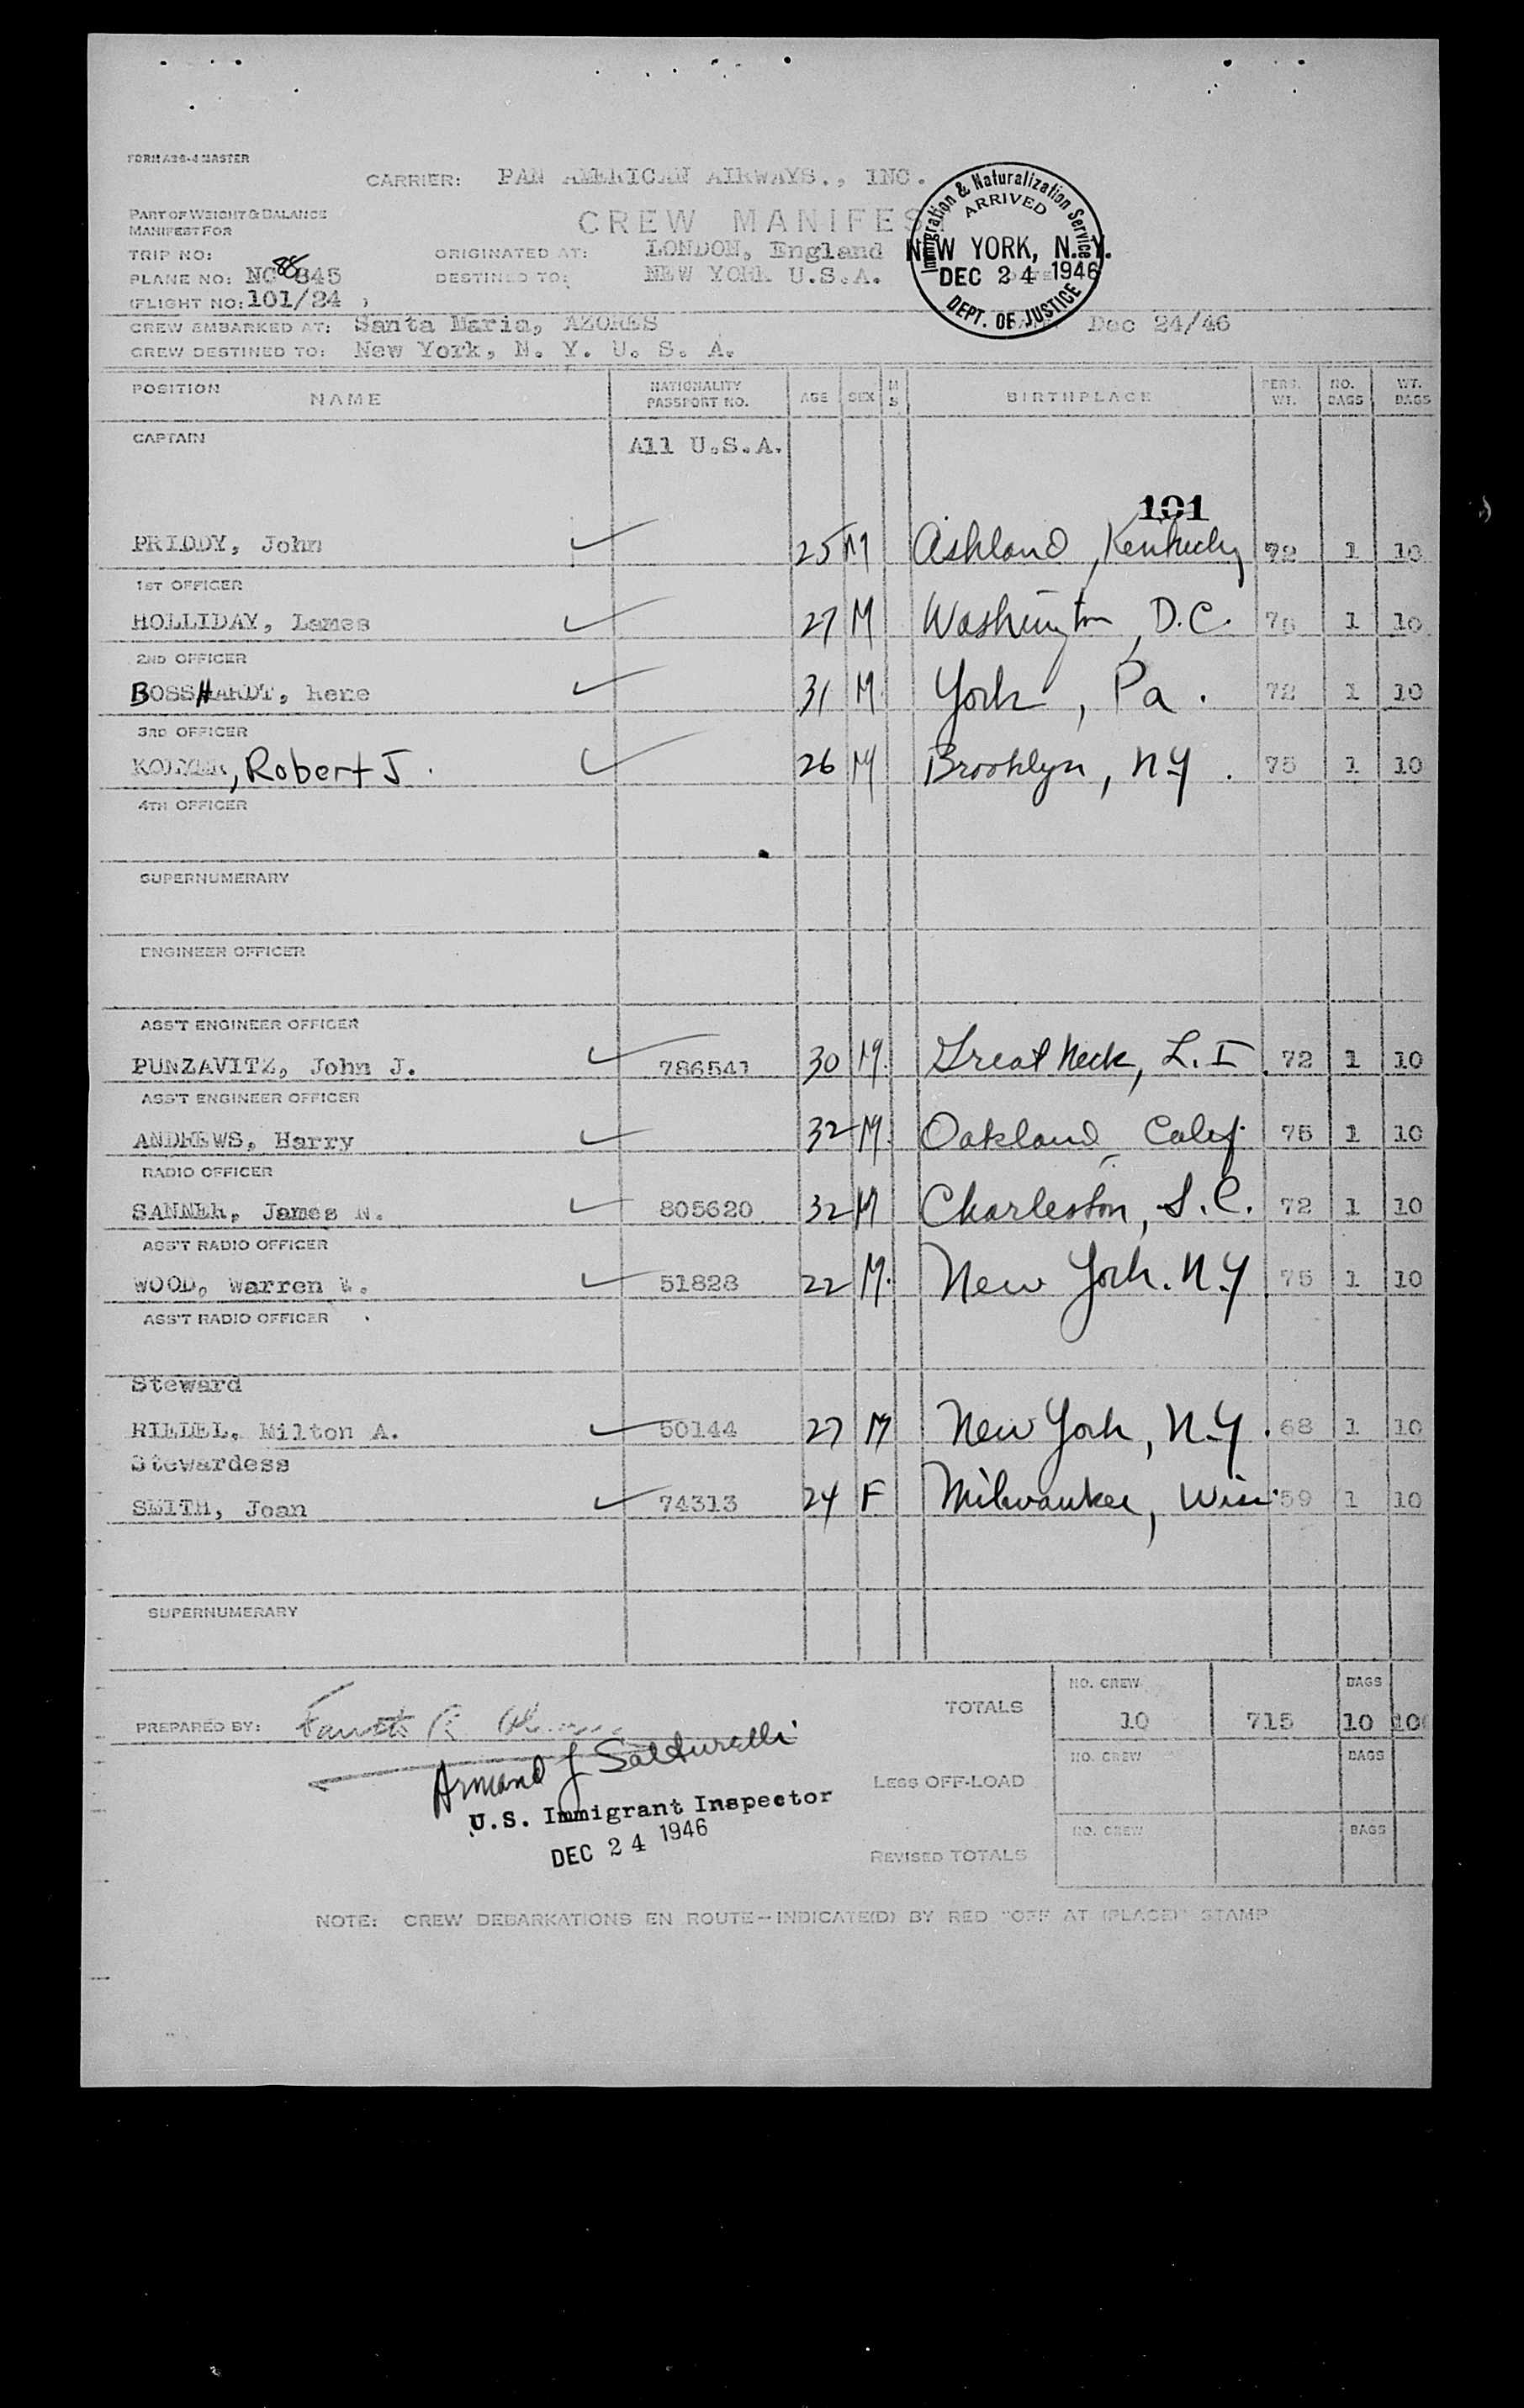 FORM A26-4 MASTER
CARRIER: PAN AMERICAN AIRWAYS., INC.
PART OF WEIGHT & BALANCE
MANIFEST FOR
CREW MANIFES
Immigration & Naturalization Service
ARRIVED
NEW YORK, N.Y.
DEC 24 1946
DEPT. OF JUSTICE
TRIP NO: ORIGINATED AT: LONDON, England
PLANE NO: NC 88845 DESTINED TO: NEW YORK U.S.A.
(FLIGHT NO: 101/24 )
CREW EMBARKED AT: Santa Maria, AZORES Dec 24/46
CREW DESTINED TO: New York, N. Y. U. S. A.
POSITION NAME NATIONALITY PASSPORT NO. AGE SEX M S BIRTHPLACE PERS. WT. NO. BAGS WT. BAGS
CAPTAIN All U.S.A.
101
PRIDDY, John 25 M Ashland, Kentucky 72 1 10
1ST OFFICER
HOLLIDAY, Lames 27 M Washington, D.C. 1 10
2ND OFFICER
BOSSHARDT, Rene 31 M York, Pa. 72 1 10
3RD OFFICER
, Robert J. 26 M Brooklyn, NY. 75 1 10
4TH OFFICER
SUPERNUMERARY
ENGINEER OFFICER
ASS'T ENGINEER OFFICER
PUNZAVITZ, John J. 786541 30 M. Great Neck, L.I. 72 1 10
ASS'T ENGINEER OFFICER
ANDREWS, Harry 32 M. Oakland, Calif. 75 1 10
RADIO OFFICER
SANNER, James N. 805620 32 M Charleston, S.C. 72 1 10
ASS'T RADIO OFFICER
WOOD, Warren W. 51828 22 M. New York. N.Y 75 1 10
ASS'T RADIO OFFICER
Steward
RIEDEL, Milton A. 50144 27 M New York, N.Y. 68 1 10
Stewardess
SMITH, Joan 74313 24 F Milwaukee, Wisc 59 1 10
SUPERNUMERARY
TOTALS NO. CREW 10 715 BAGS 10 100
PREPARED BY:
Armand J Salturelli
U.S. Immigrant Inspector
DEC 24 1946
LESS OFF-LOAD NO. CREW BAGS
REVISED TOTALS NO. CREW BAGS
NOTE: CREW DEBARKATIONS EN ROUTE--INDICATE(D) BY RED "OFF AT (PLACE)" STAMP